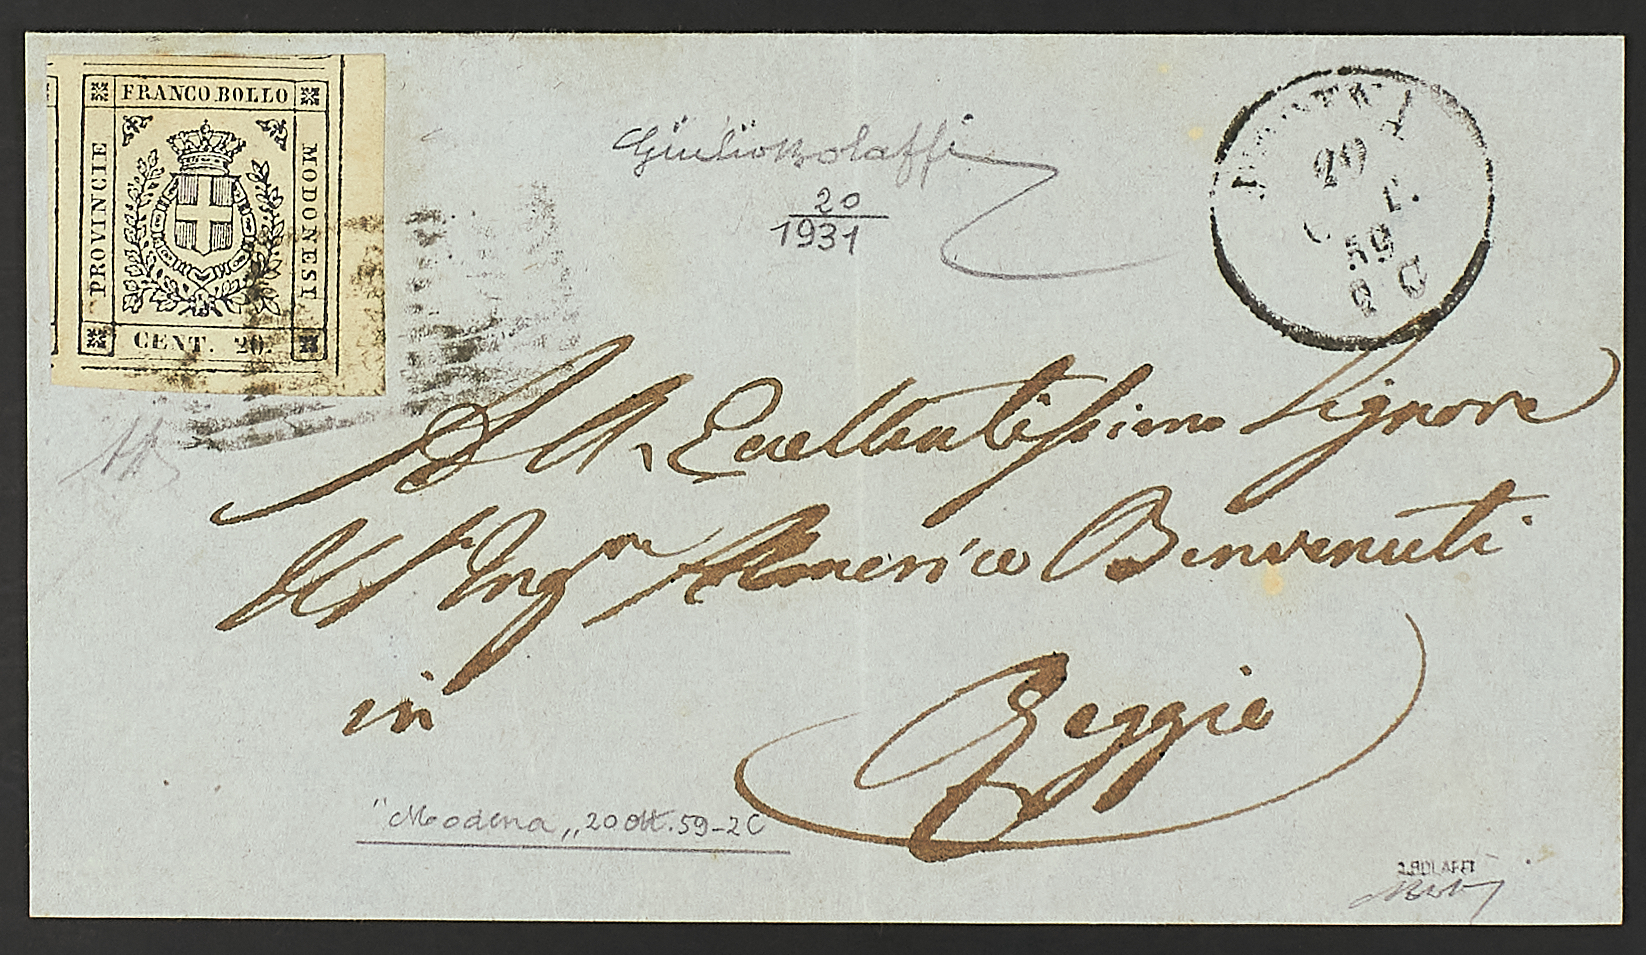 FRANCO BOLLO
PROVINCIE
MODONESI
CENT. 20.
Giulio Bolaffi
20
1931
20
59
2 C
All. Eccellentissimo Signore
Il Sig. Ingre Americo Benvenuti
in Reggio
"Modena„ 20 Ott. 59-2C
BOLAFFI